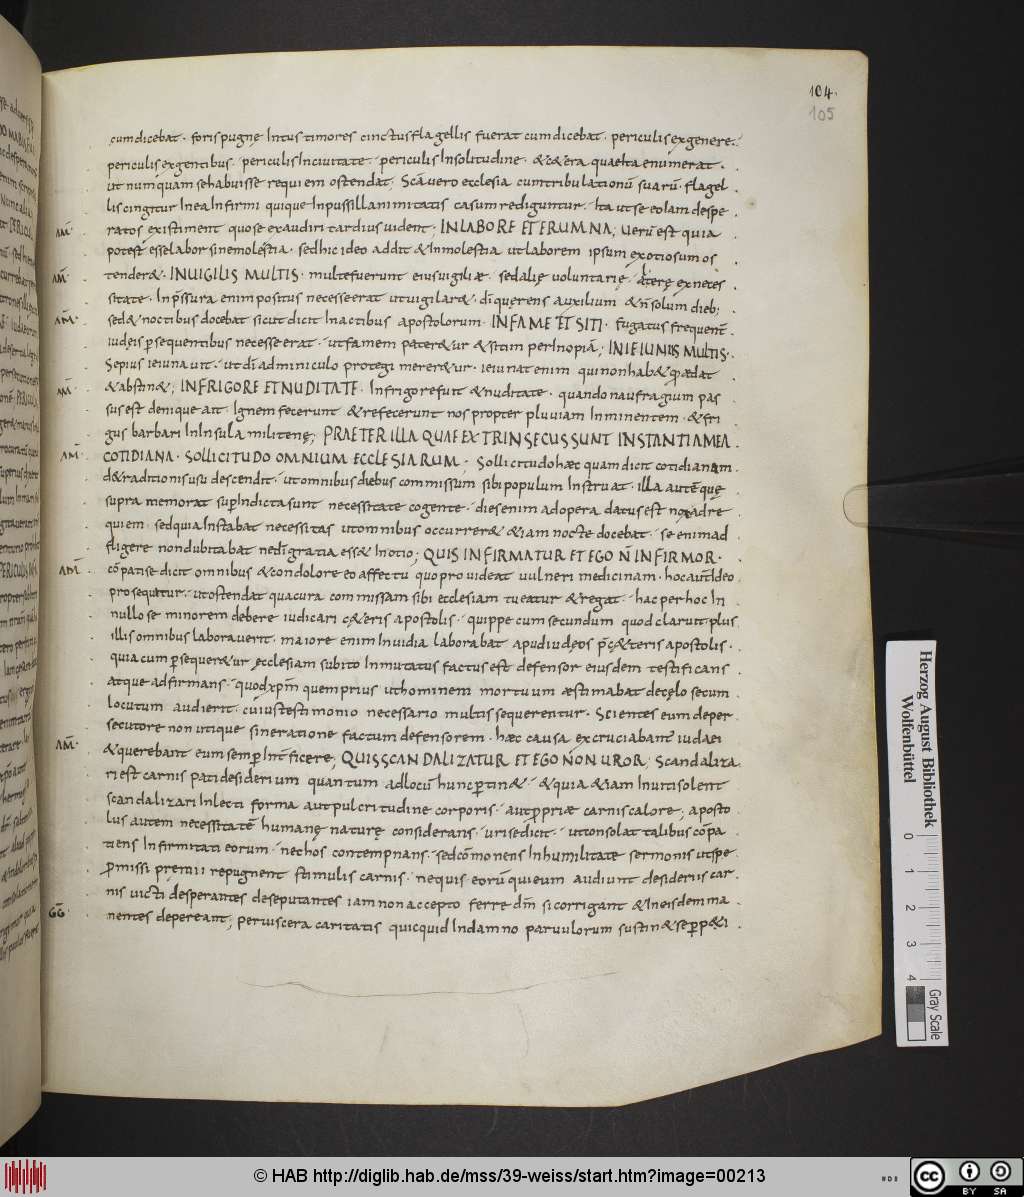 104.
105
cum dicebat. foris pugnę Intus timores cinctus flagellis fuerat cum dicebat. periculis ex genere.
periculis ex gentibus. periculis In ciuitate. periculis In solitudine. & c&era quae Ita enumerat.
ut numquam se habuisse requiem ostendat. Scā uero ecclesia cum tribulationū suarū. flagel
lis cingitur In ea Infirmi quique In pussillanimitatis casum rediguntur. Ita ut se eo lam despe
AM̄. ratos existiment quo se exaudiri tardius uident; IN LABORE ET ERUMNA; Uerū est quia
potest esse labor sine molestia. sed hic ideo addit & In molestia ut laborem ipsum ex otiosum os
AM̄. tender&. IN UIGILIS MULTIS. multe fuerunt eius uigiliæ. sed alię voluntarię. alterę ex neces
sitate. In p̄ssura enim positus necesse erat ut uigilar&. dī querens auxilium & n̄ solum dieb;
AM̄. sed & noctibus docebat sicut dicit In actibus apostolorum. IN FAME ET SITI. fugatus frequent̄
iudęis p̄sequentibus necesse erat. ut famem pater&ur & sitim per Inopiā; IN IEIUNIIS MULTIS.
Sepius ieiunauit. ut dī adminiculo protegi merer&ur. ieiunat enim qui non hab& quod ædat
AM̄. & abstin&; IN FRIGORE ET NUDITATE. In frigore fuit & nuditate. quando naufragium pas
sus est denique ait. Ignem fecerunt & refecerunt nos propter pluuiam Inminentem & fri
gus barbari In Insula militenę; PRAETER ILLA QUAE EXTRINSECUS SUNT INSTANTIA MEA
AM̄. COTIDIANA. SOLLICITUDO OMNIUM ECCLESIARUM; Sollicitudo hæc quam dicit cotidianam
de traditionis usu descendit. ut omnibus diebus commissum sibi populum Instruat. illa autē quę
supra memorat sup̄ Indicta sunt necessitate cogente. dies enim ad opera datus est nox ad re
quiem. sed quia Instabat necessitas ut omnibus occurrer& & iam nocte docebat. se enim ad
fligere non dubitabat ne dī gratia ess& In otio; QUIS INFIRMATUR ET EGO N̄ INFIRMOR.
AM̄. cōpati se dicit omnibus & condolore eo affectu quo prouideat uulneri medicinam. hoc aut̄ Ideo
prosequitur. ut ostendat qua cura commissam sibi ecclesiam tueatur & regat. hac per hoc In
nullo se minorem debere iudicari c&eris apostolis. quippe cum secundum quod claruit plus
illis omnibus laborauerit. maiore enim Inuidia laborabat apud iudęos p̄ c&eteris apostolis.
quia cum p̄sequer&ur ęcclesiam subito Inmutatus factus est defensor eiusdem testificans
atque adfirmans. quod xp̄m quem prius ut hominem mortuum æstimabat de cęlo secum
locutum audierit. cuius testimonio necessario multi sequerentur. Scientes eum de per
secutore non utique sine ratione factum defensorem. hæc causa excruciabant iudaei
AM̄. & querebant eum semp̄ Int̄ficere; QUIS SCANDALIZATUR ET EGO NON UROR; Scandaliza
ri est carnis pati desiderium quantum ad locū hunc p̄tin&. & quia &iam Inuiti solent
scandalizari Inlecti forma aut pulcritudine corporis. aut p̄priæ carnis calore; aposto
lus autem necessitatē humanę naturę considerans. uri se dicit. ut consolat talibus cōpa
tiens Infirmitati eorum. nec hos contempnans. sed cōmonens In humilitate sermonis ut spe
p̄missi premii repugnent stimulis carnis. ne quis eorū qui eum audiunt desideriis car
nis uicti desperantes de se putantes iam non accepto ferre dm̄ si corrigant & In eisdem ma
ḠḠ. nentes depereant; per uiscera caritatis quicquid In damno paruulorum sustin& se p̄p&i
Herzog August Bibliothek
Wolfenbüttel
0 1 2 3 4
Gray Scale
© HAB http://diglib.hab.de/mss/39-weiss/start.htm?image=00213
cc BY SA